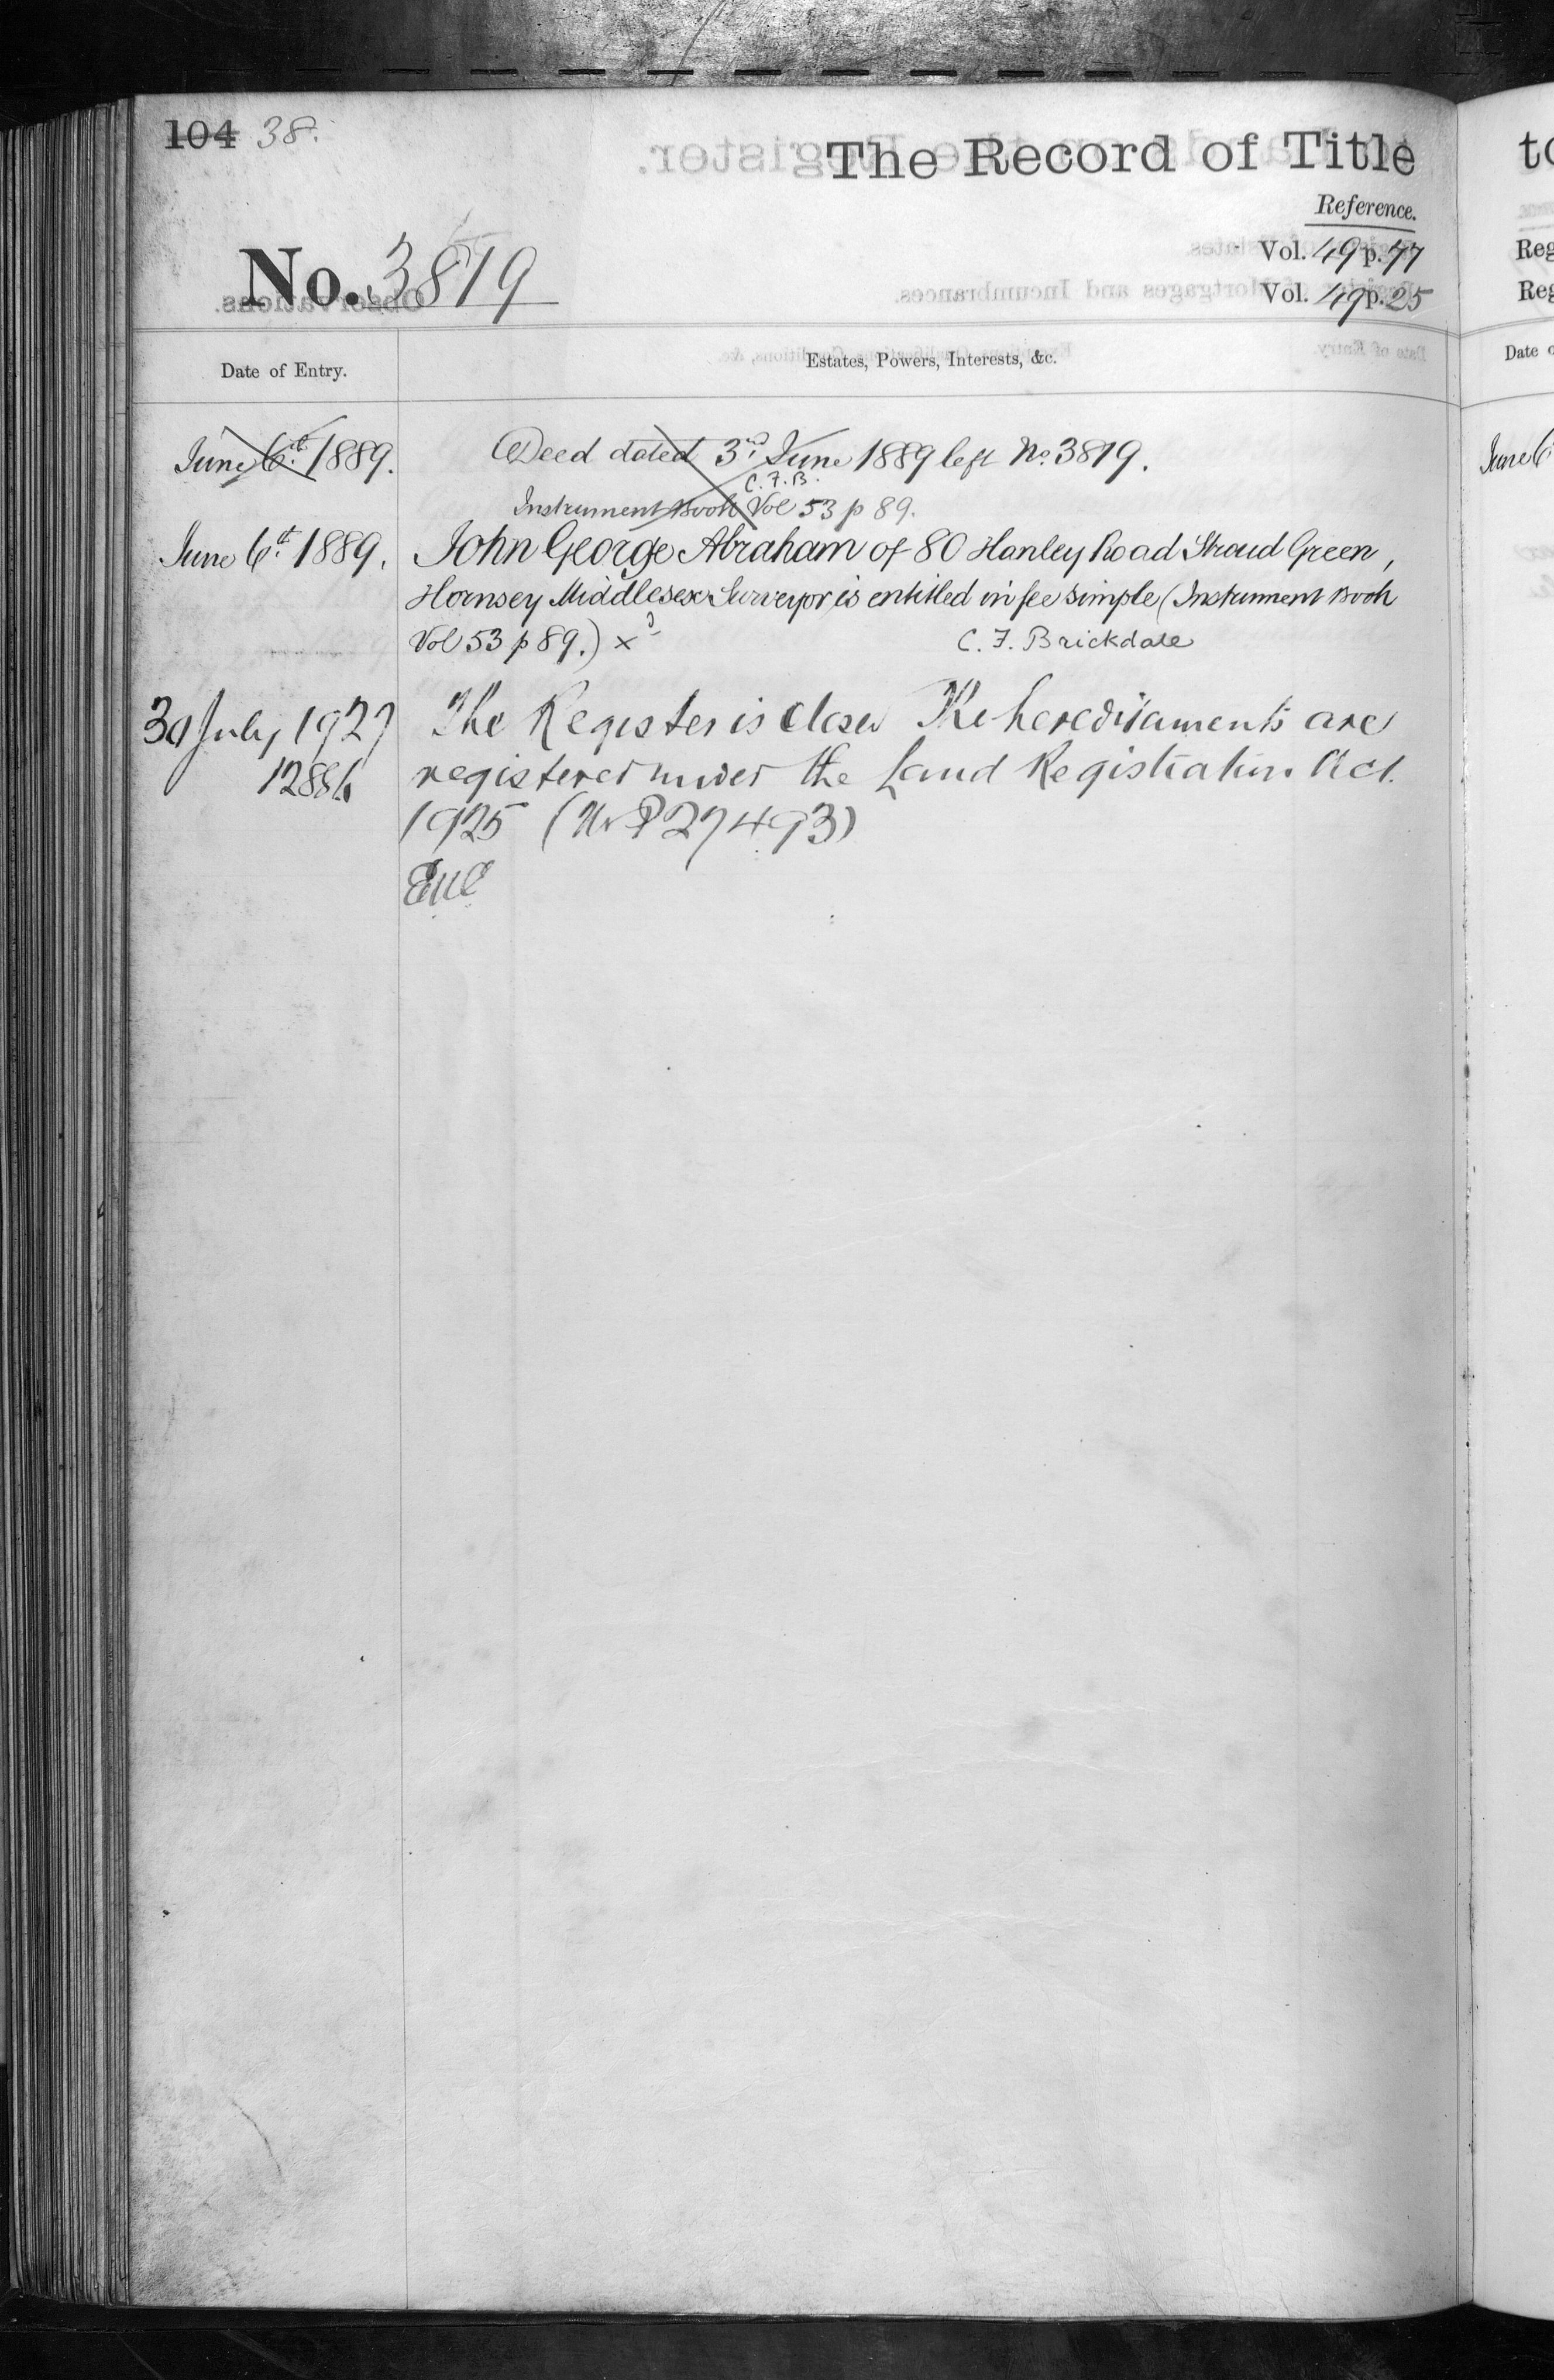 104 38.
The Record of Title
Reference.
No. 3819
Vol. 49 p. 77
Vol. 49 p. 25
Date of Entry.
Estates, Powers, Interests, &c.
June 6th 1889.
Deed dated 3rd June 1889 left No. 3819.
C. F. B.
Instrument Book Vol 53 p 89.
June 6th 1889.
John George Abraham of 80 Hanley Road Stroud Green,
Hornsey Middlesex Surveyor is entitled in fee simple (Instrument Book
Vol 53 p 89.) x
C. F. Brickdale
30 July 1927
12886
The Register is closed The hereditaments are
registered under the Land Registration Act
1925 (No P27493)
to
Reg
Reg
Date o
June 6